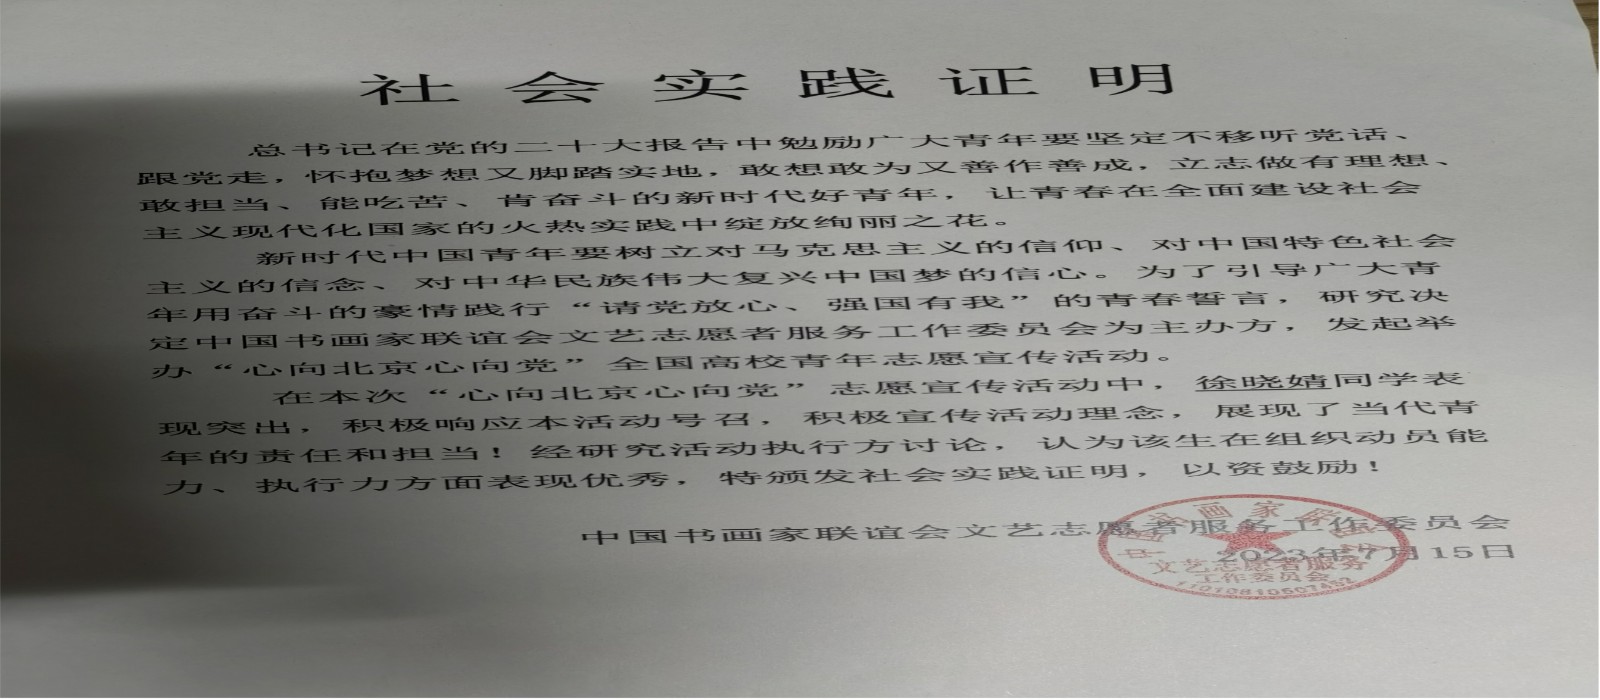 社会实践证明
总书记在党的二十大报告中勉励广大青年要坚定不移听党话、
跟党走，怀抱梦想又脚踏实地，敢想敢为又善作善成，立志做有理想、
敢担当、能吃苦、肯奋斗的新时代好青年，让青春在全面建设社会
主义现代化国家的火热实践中绽放绚丽之花。
新时代中国青年要树立对马克思主义的信仰、对中国特色社会
主义的信念、对中华民族伟大复兴中国梦的信心。为了引导广大青
年用奋斗的豪情践行“请党放心、强国有我”的青春誓言，研究决
定中国书画家联谊会文艺志愿者服务工作委员会为主办方，发起举
办“心向北京心向党”全国高校青年志愿宣传活动。
在本次“心向北京心向党”志愿宣传活动中，徐晓婧同学表
现突出，积极响应本活动号召，积极宣传活动理念，展现了当代青
年的责任和担当！经研究活动执行方讨论，认为该生在组织动员能
力、执行力方面表现优秀，特颁发社会实践证明，以资鼓励！
中国书画家联谊会文艺志愿者服务工作委员会
2023年7月15日
中国书画家联谊会
文艺志愿者服务
工作委员会